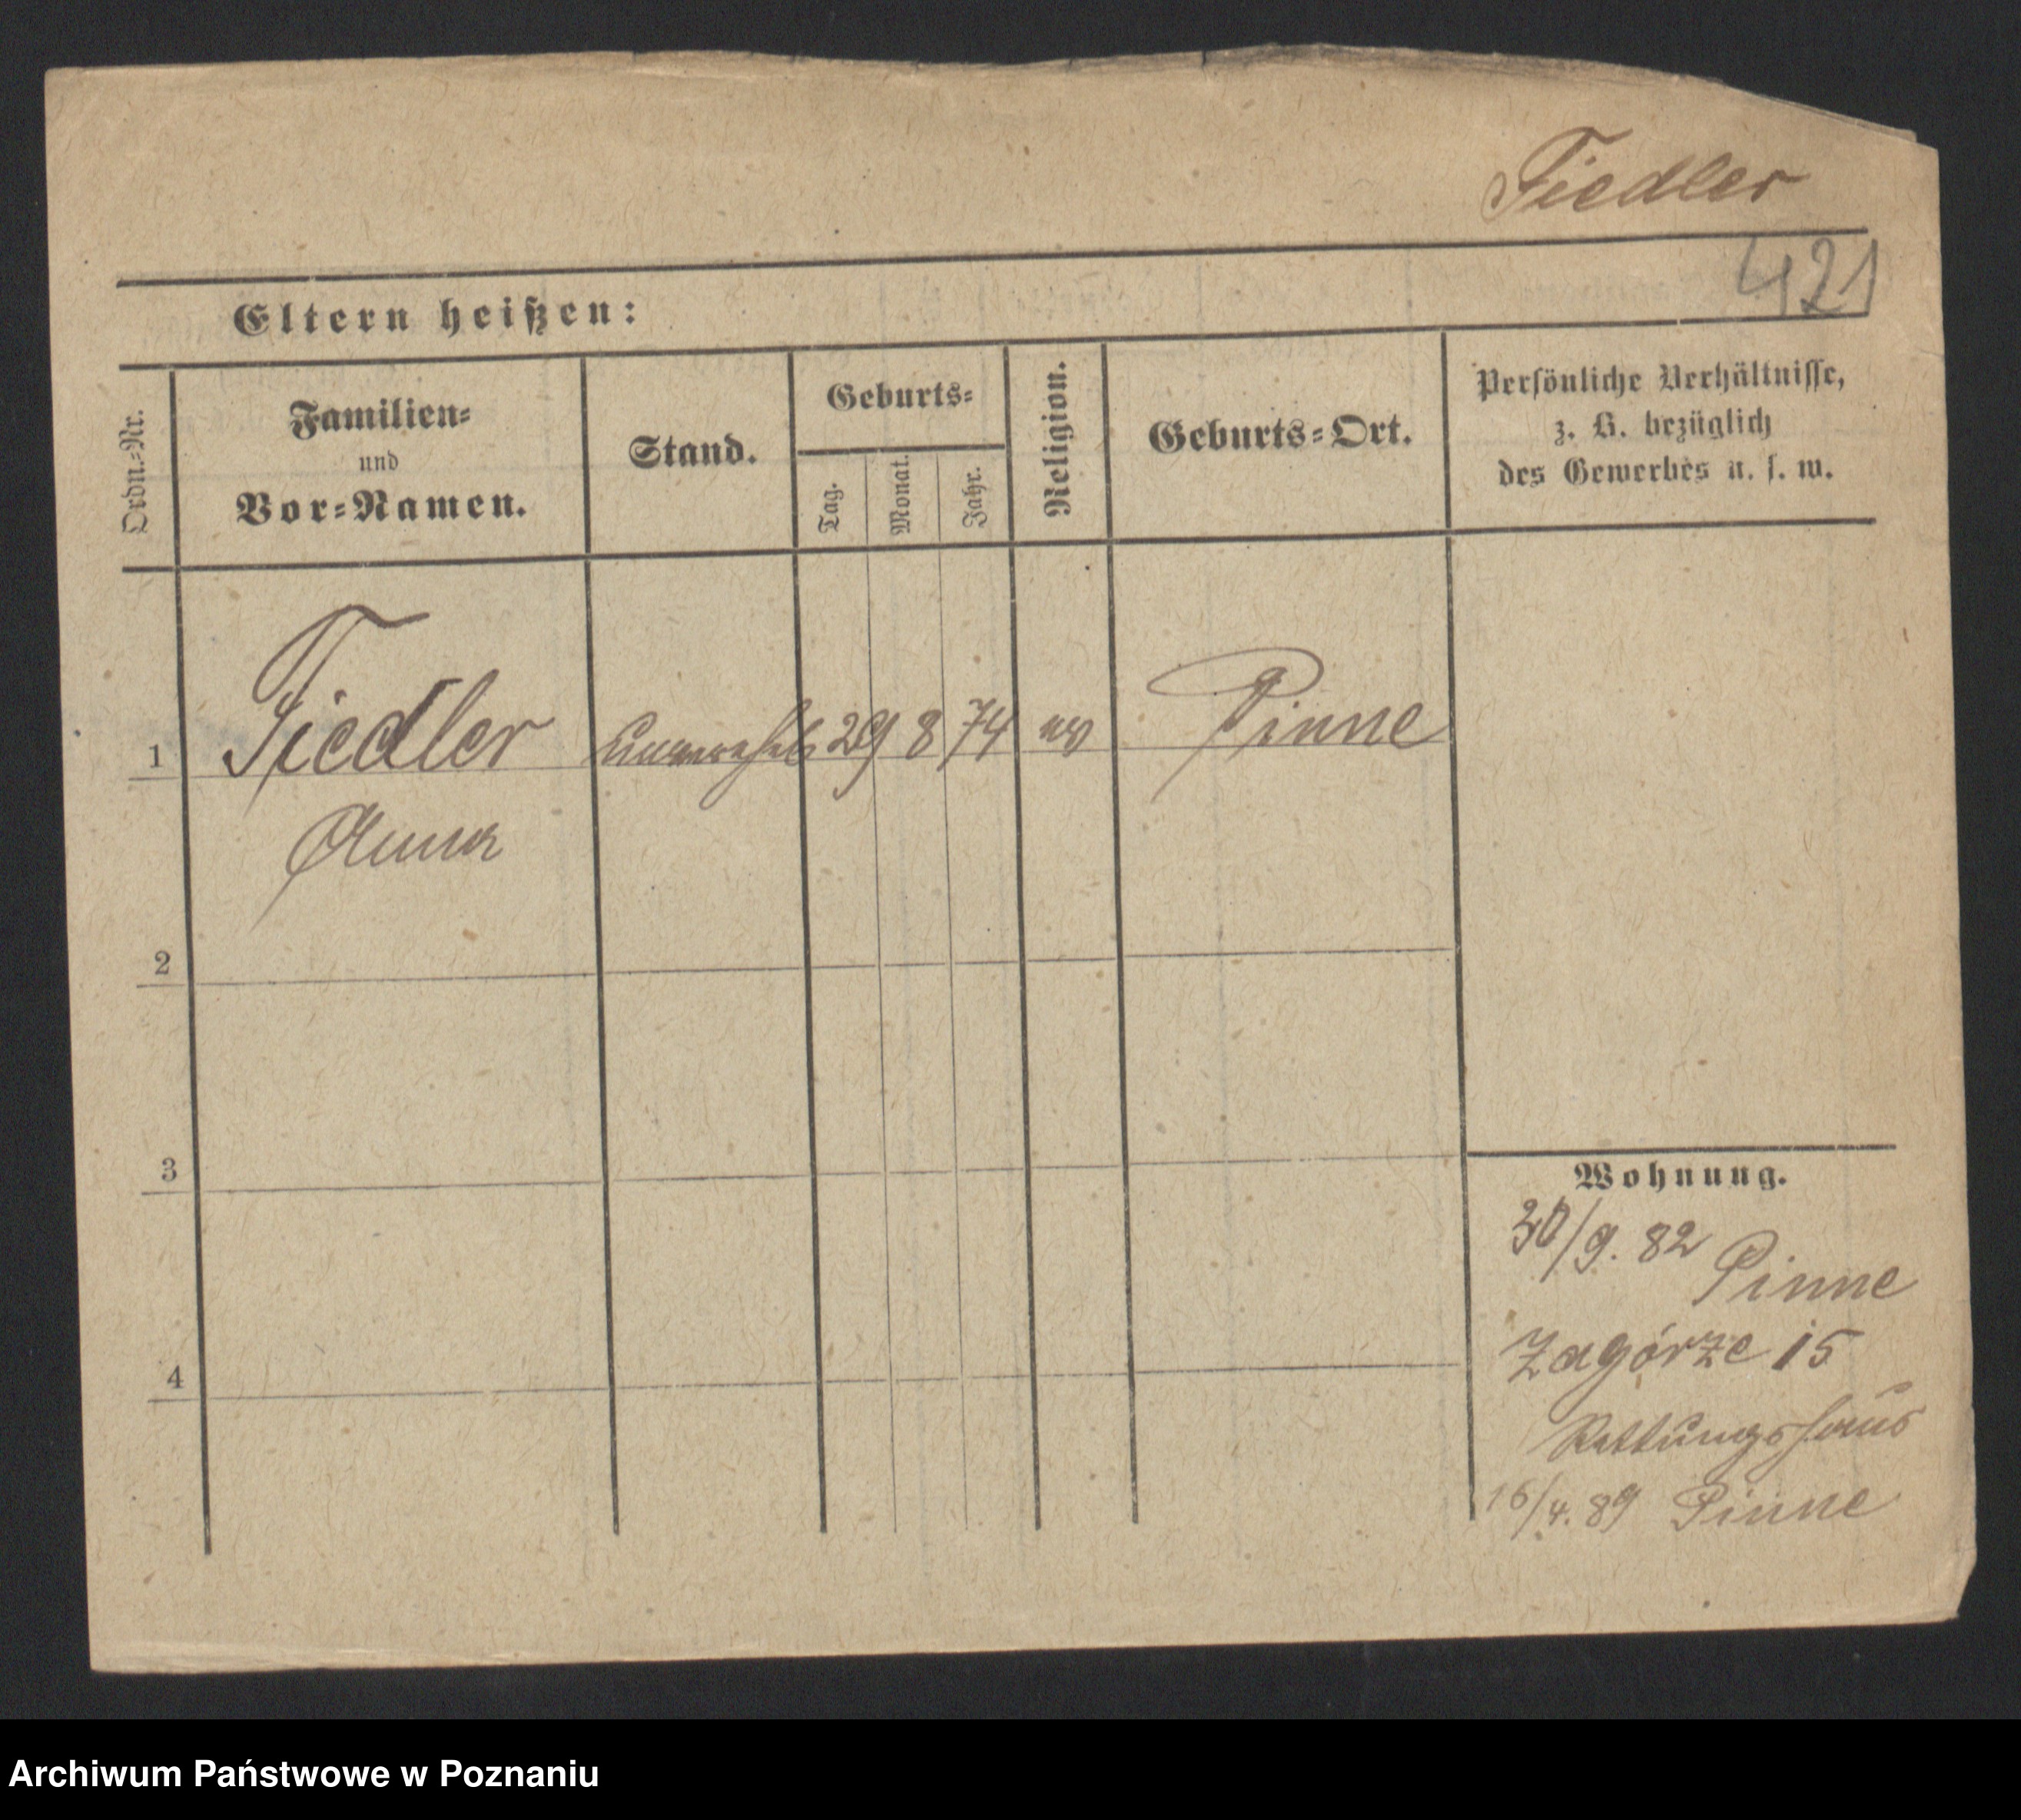 Fiedler
421
Eltern heißen:
Ordn.=Nr.
Familien=
und
Vor=Namen.
Stand.
Geburts=
Tag.
Monat.
Jahr.
Religion.
Geburts=Ort.
Persönliche Verhältnisse,
z. B. bezüglich
des Gewerbes u. s. w.
1 Fiedler unverehel 29 8 74 ev Pinne
Anna
2
3
4
Wohnung.
30/9. 82 Pinne
Zagórze 15
Rettungshaus
16/4. 89 Pinne
Archiwum Państwowe w Poznaniu